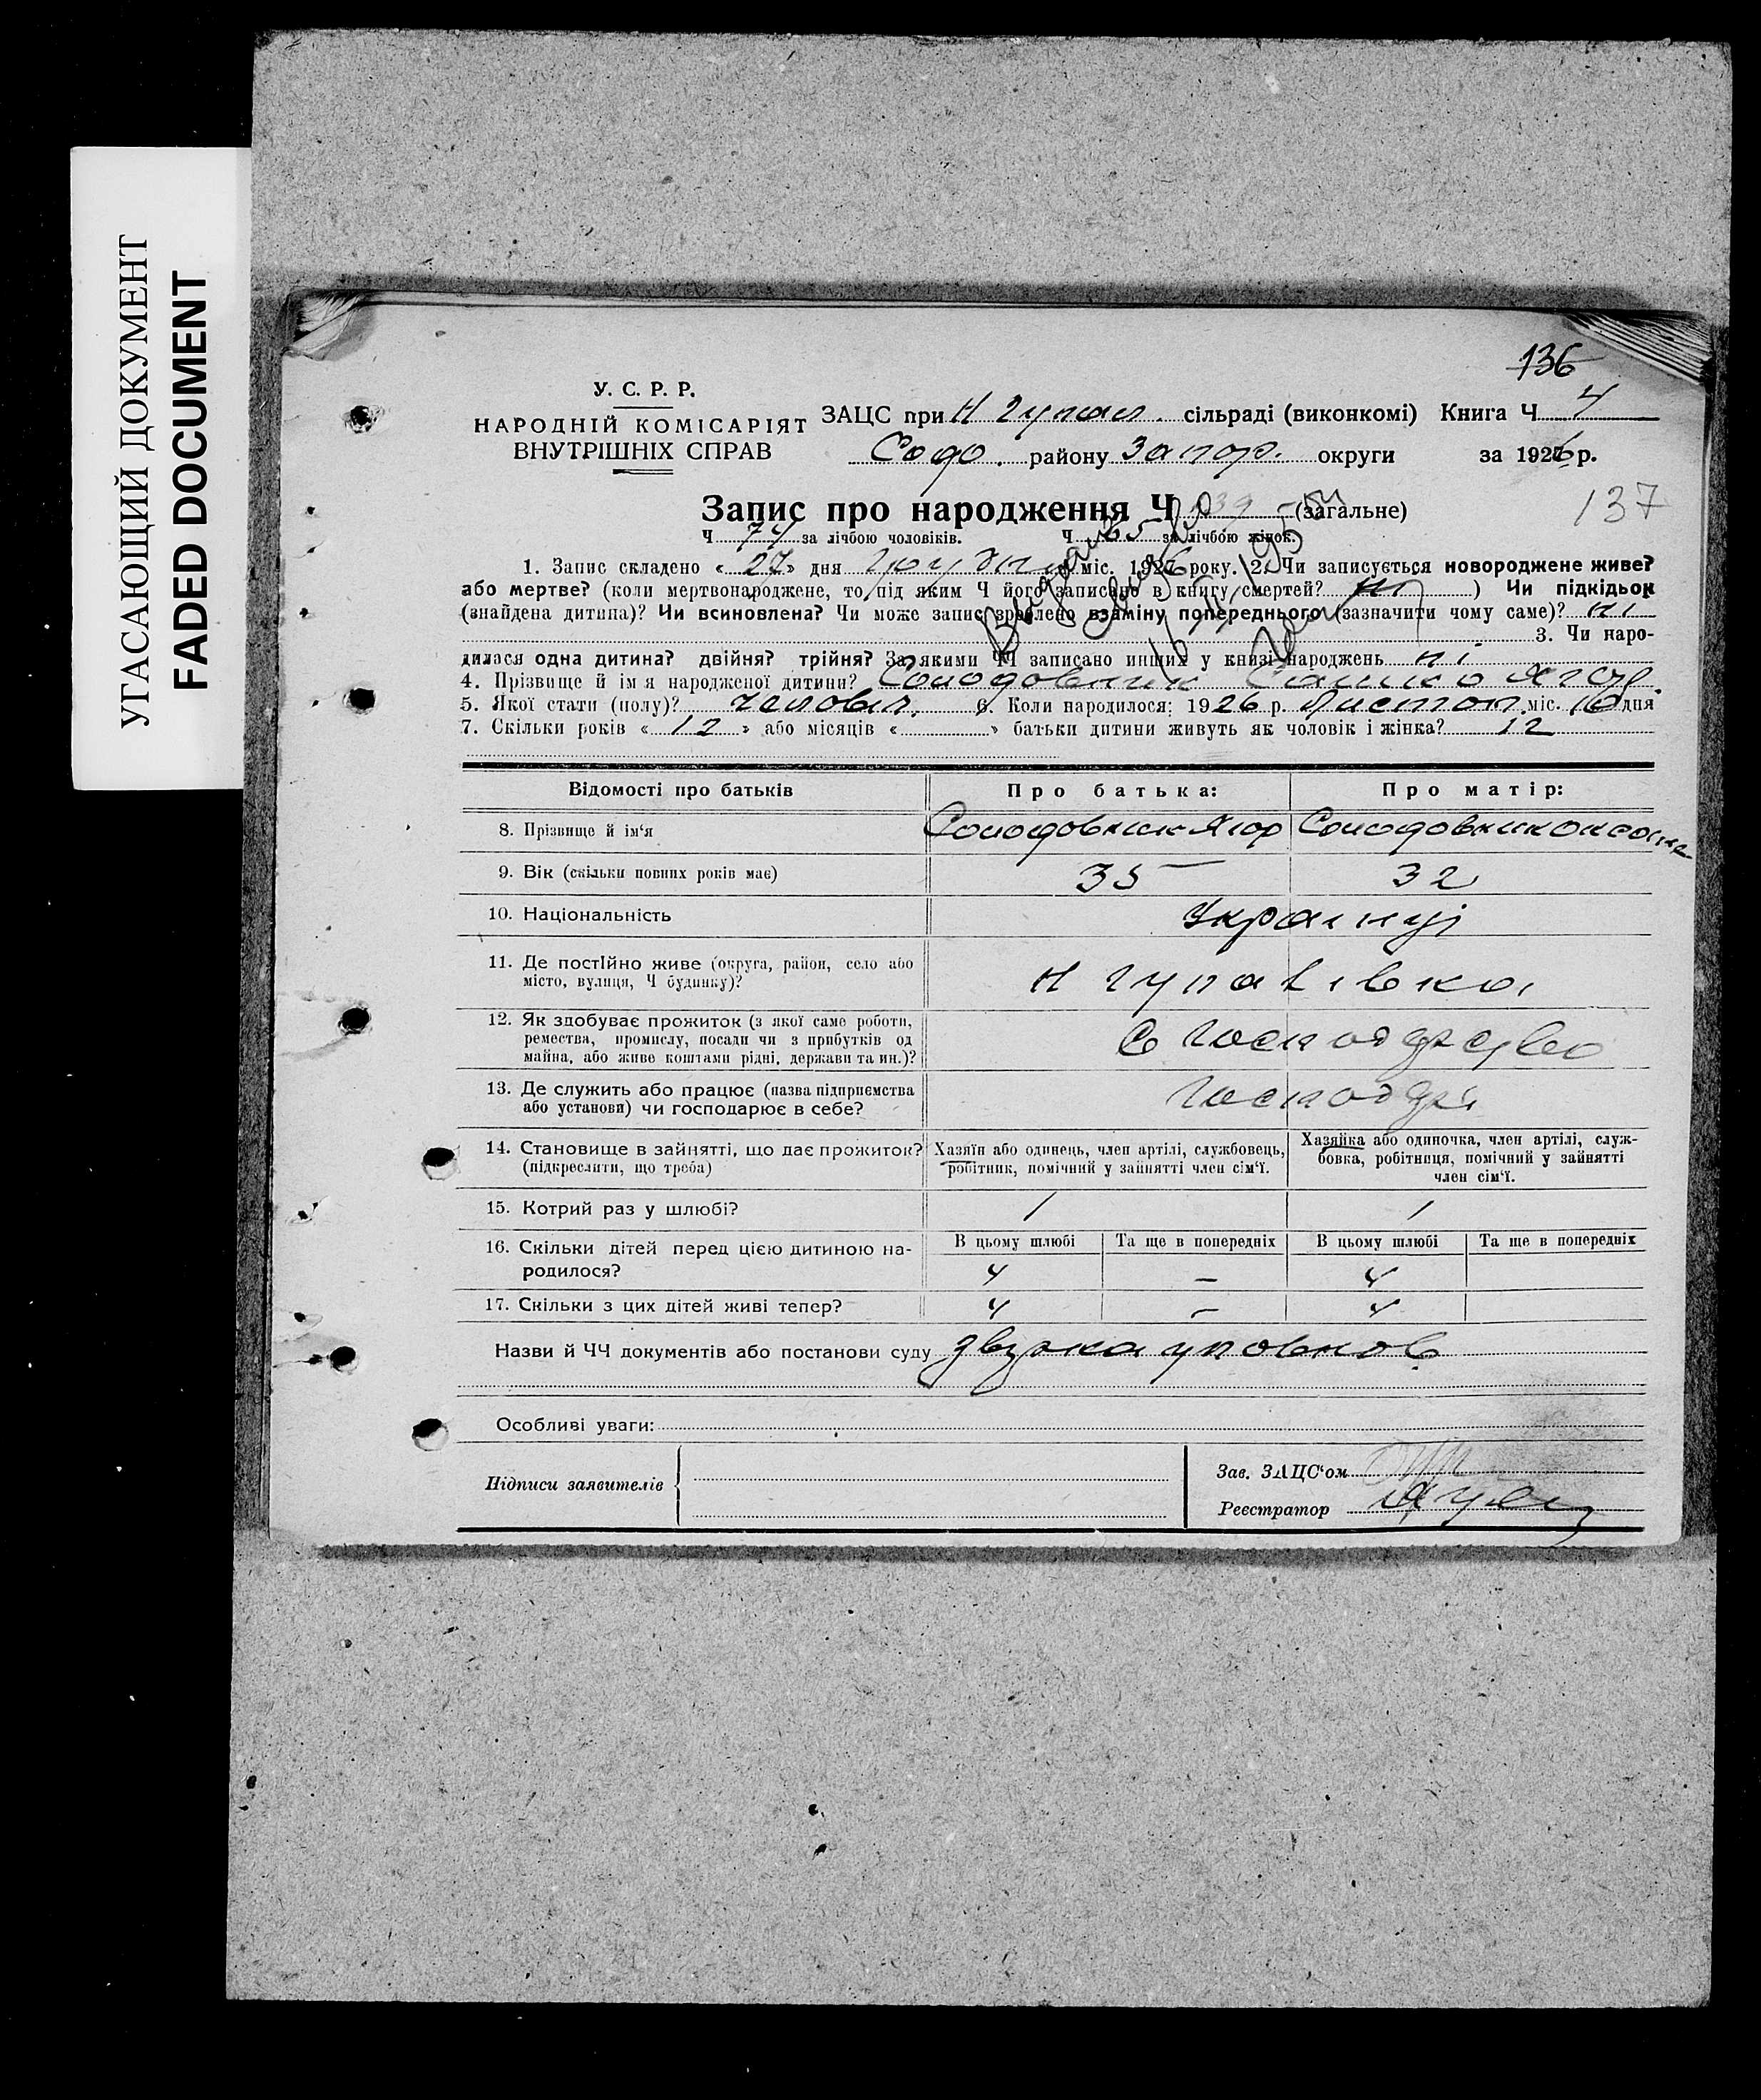 УГАСАЮЩИЙ ДОКУМЕНТ
FADED DOCUMENT
136
У. С. Р. Р.
НАРОДНІЙ КОМІСАРІЯТ
ВНУТРІШНІХ СПРАВ
ЗАЦС при Н Гупал. сільраді (виконкомі) Книга Ч 4
Софо. району Запор. округи за 1926 р.
137
Запис про народження Ч 139 (загальне)
Ч 74 за лічбою чоловіків. Ч 65 за лічбою жінок.
1. Запис складено « 27 » дня грудня міс. 1926 року. 2. Чи записується новороджене живе?
або мертве? (коли мертвонароджене, то під яким Ч його записано в книгу смертей? ні ) Чи підкідьок
(знайдена дитина)? Чи всиновлена? Чи може запис зроблено взаміну попереднього (зазначити чому саме)? ні
3. Чи наро-
дилася одна дитина? двійня? трійня? За якими ЧЧ записано инших у книзі народжень ні
4. Прізвище й ім'я народженої дитини? Солодовник Сашко Ягор.
5. Якої стати (полу)? Чоловіч. 6. Коли народилося: 1926 р. Листоп. міс. 16 дня
7. Скільки років « 12 » або місяців « » батьки дитини живуть як чоловік і жінка? 12
Відомості про батьків Про батька: Про матір:
8. Прізвище й ім'я Солодовник Ягор Солодовник Оксана
9. Вік (скільки повних років має) 35 32
10. Національність Українці
11. Де постійно живе (округа, район, село або
місто, вулиця, Ч будинку)? Н Гупалівка
12. Як здобуває прожиток (з якої саме роботи,
ремества, промислу, посади чи з прибутків од
майна, або живе коштами рідні, держави та ин.)?
13. Де служить або працює (назва підприємства
або установи) чи господарює в себе?
14. Становище в зайнятті, що дає прожиток?
(підкреслити, що треба)
Хазяїн або одинець, член артілі, службовець,
робітник, помічний у зайнятті член сім'ї.
Хазяйка або одиночка, член артілі, служ-
бовка, робітниця, помічний у зайнятті
член сім'ї.
15. Котрий раз у шлюбі? 1 1
16. Скільки дітей перед цією дитиною на-
родилося?
В цьому шлюбі Та ще в попередніх В цьому шлюбі Та ще в попередніх
4 – 4
17. Скільки з цих дітей живі тепер? 4 – 4
Назви й ЧЧ документів або постанови суду
Особливі уваги:
Підписи заявителів
Зав. ЗАЦС'ом
Реєстратор